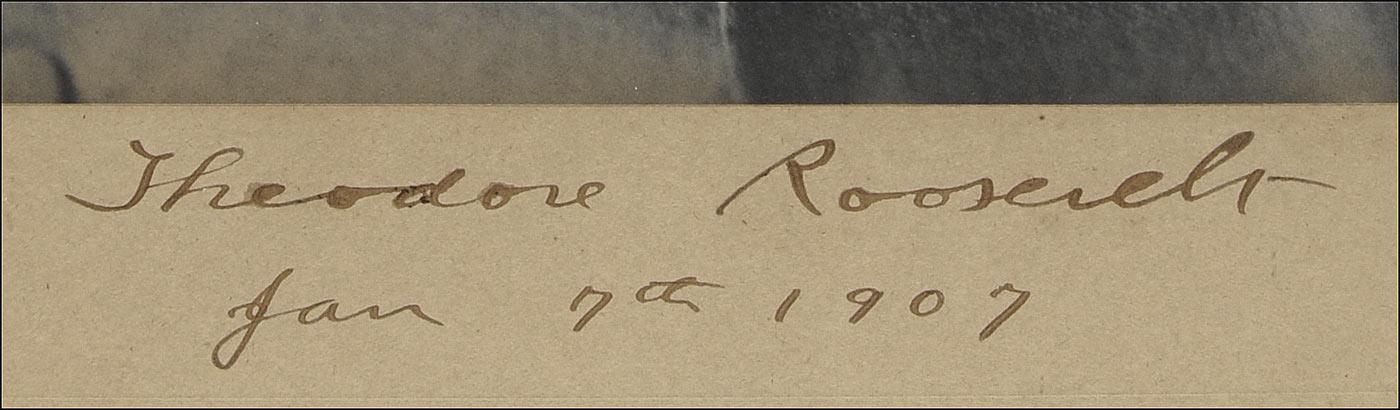 Theodore Roosevelt
Jan 7th 1907